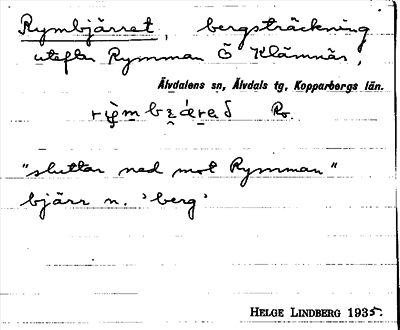 Rymbjärret, bergsträckning
utefter Rymman Ö Klämnäs,
Älvdalens sn, Älvdals tg, Kopparbergs län.
Ro.
"sluttar ned mot Rymman"
bjärr n. 'berg'
HELGE LINDBERG 1935.